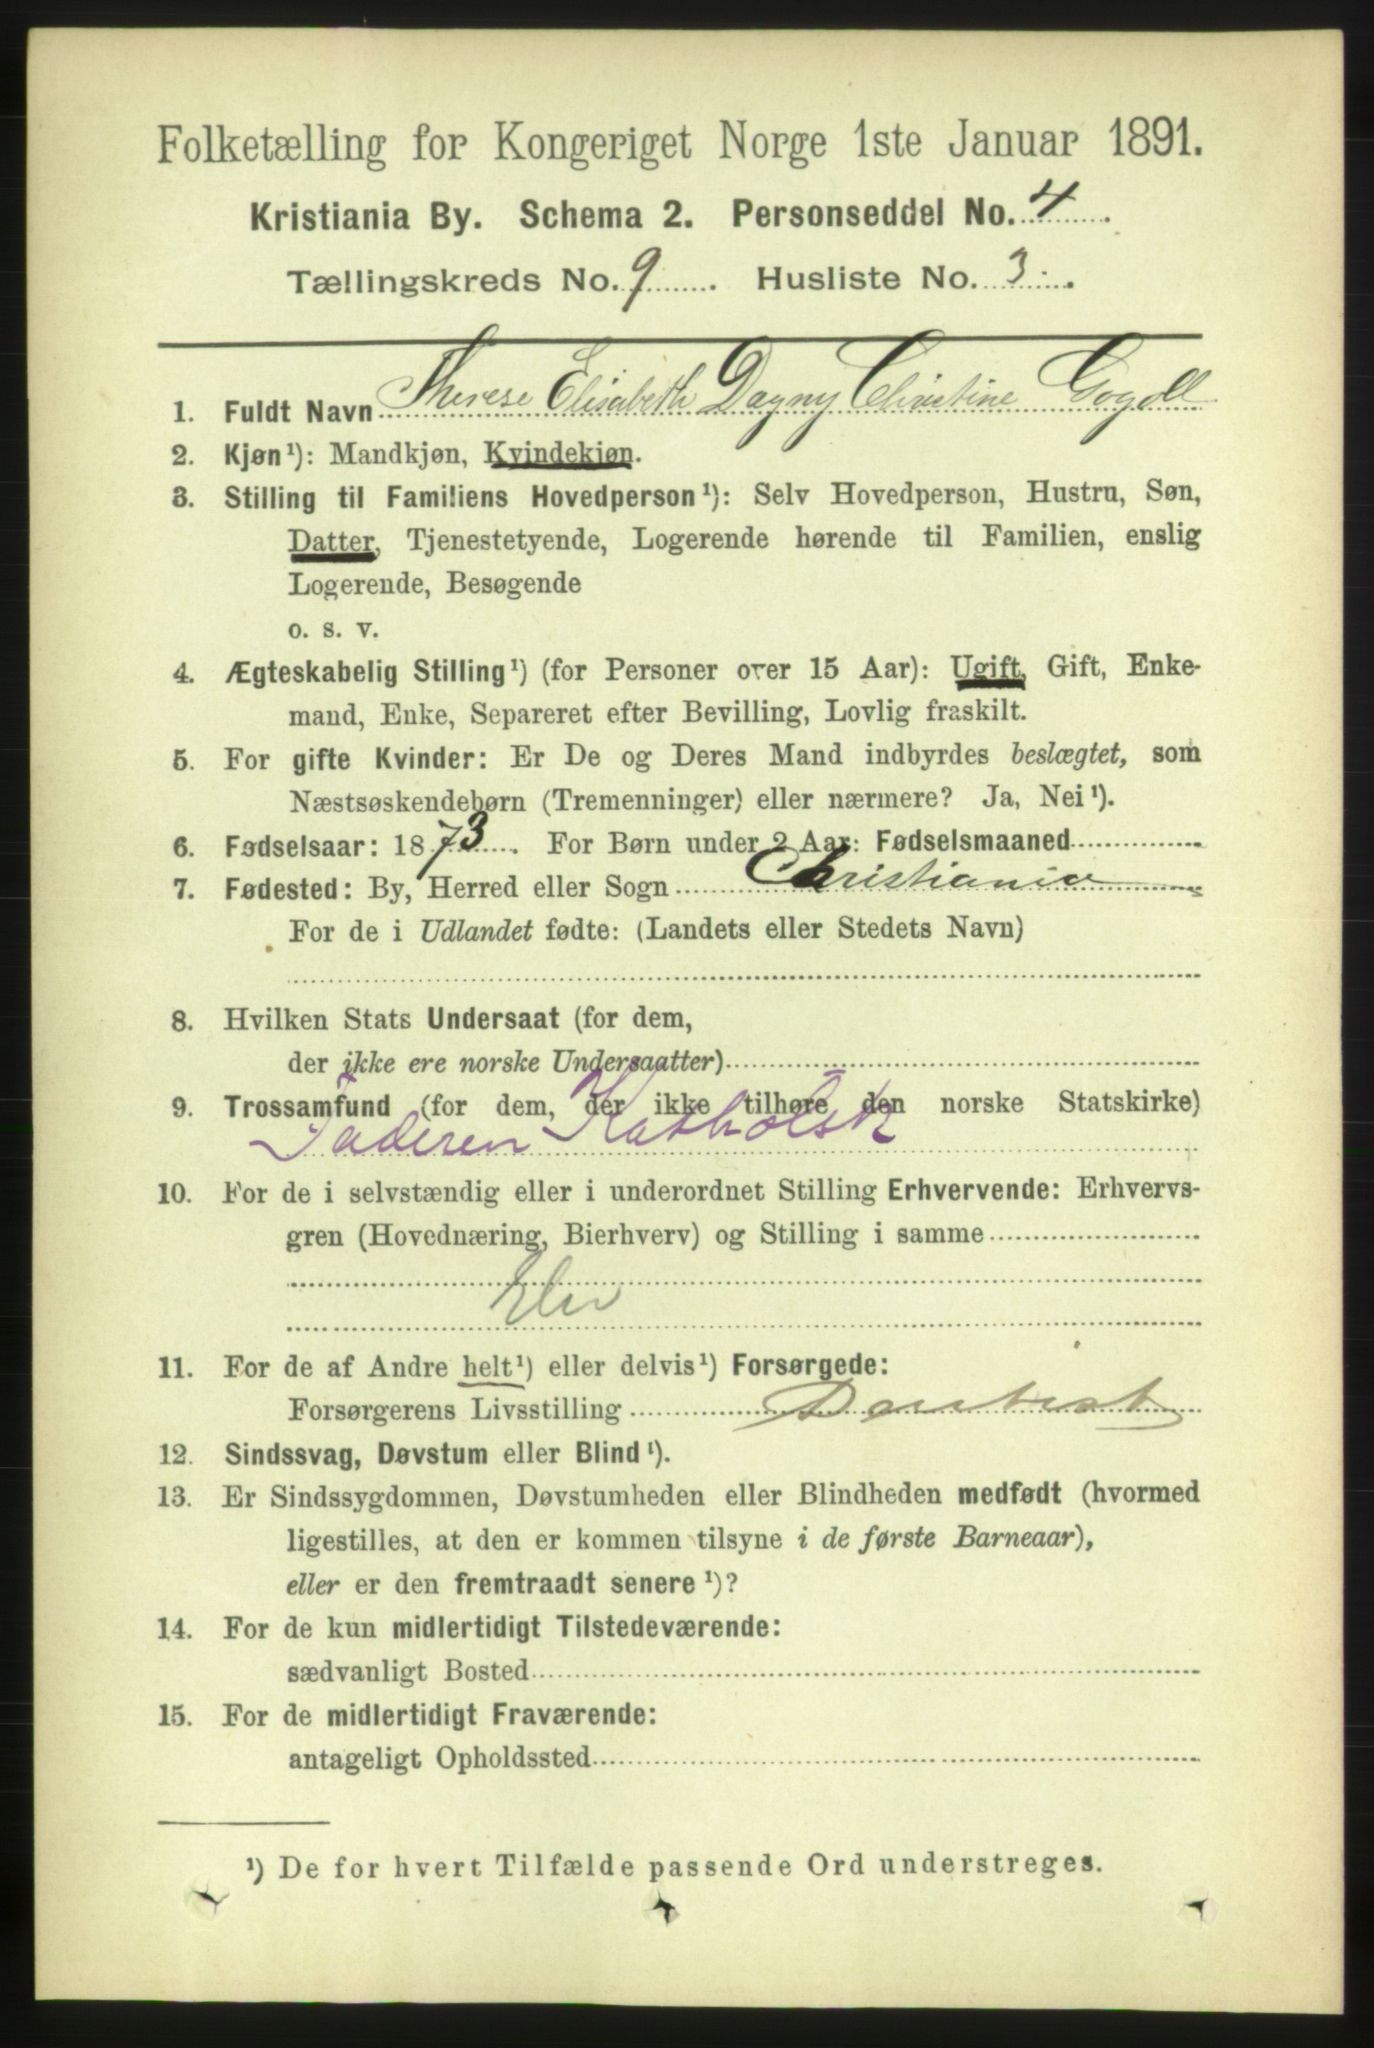 Folketælling for Kongeriget Norge 1ste Januar 1891.
Kristiania By. Schema 2. Personseddel No. 4.
Tællingskreds No. 9. Husliste No. 3.
1. Fuldt Navn Therese Elisabeth Dagny Christine Gogoll
2. Kjøn¹): Mandkjøn, Kvindekjøn.
3. Stilling til Familiens Hovedperson¹): Selv Hovedperson, Hustru, Søn,
Datter, Tjenestetyende, Logerende hørende til Familien, enslig
Logerende, Besøgende
o. s. v.
4. Ægteskabelig Stilling¹) (for Personer over 15 Aar): Ugift, Gift, Enke-
mand, Enke, Separeret efter Bevilling, Lovlig fraskilt.
5. For gifte Kvinder: Er De og Deres Mand indbyrdes beslægtet, som
Næstsøskendebørn (Tremenninger) eller nærmere? Ja, Nei¹).
6. Fødselsaar: 1873. For Børn under 2 Aar: Fødselsmaaned
7. Fødested: By, Herred eller Sogn Christiania
For de i Udlandet fødte: (Landets eller Stedets Navn)
8. Hvilken Stats Undersaat (for dem,
der ikke ere norske Undersaatter)
9. Trossamfund (for dem, der ikke tilhøre den norske Statskirke)
Faderen Katholsk
10. For de i selvstændig eller i underordnet Stilling Erhvervende: Erhvervs-
gren (Hovednæring, Bierhverv) og Stilling i samme
Elev
11. For de af Andre helt¹) eller delvis¹) Forsørgede:
Forsørgerens Livsstilling Dentist
12. Sindssvag, Døvstum eller Blind¹).
13. Er Sindssygdommen, Døvstumheden eller Blindheden medfødt (hvormed
ligestilles, at den er kommen tilsyne i de første Barneaar),
eller er den fremtraadt senere¹)?
14. For de kun midlertidigt Tilstedeværende:
sædvanligt Bosted
15. For de midlertidigt Fraværende:
antageligt Opholdssted
¹) De for hvert Tilfælde passende Ord understreges.